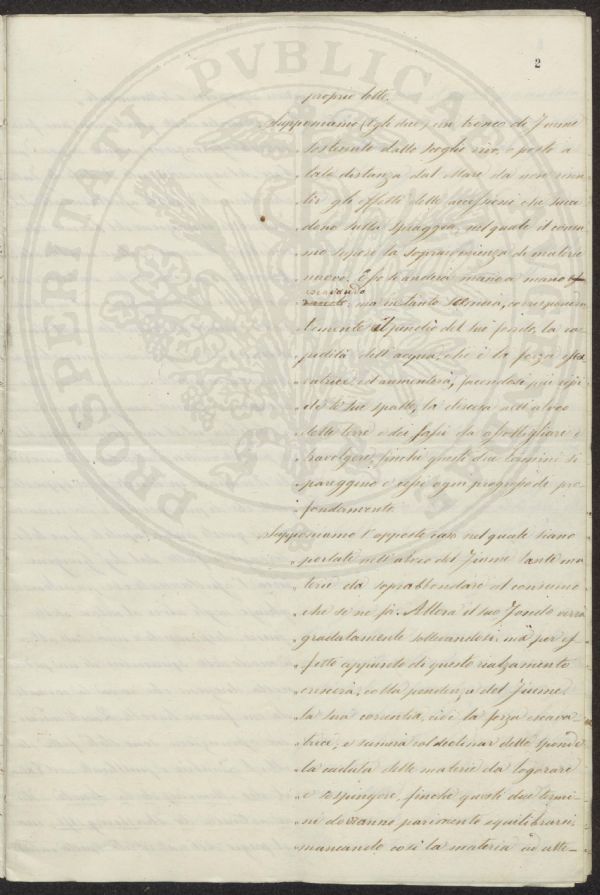 2
proprio letto.
Supponiamo (Egli dice) un tronco di Fiume
sostenuto dalle soglie vive, e posto a
tale distanza dal Mare da non
gli effetti delle accessioni che succe
dono sulla spiaggia, nel quale il consu
mo superi la sopravvenienza di materie
nuove. Esso s'anderà mano a mano
escavando, ma in tanto scemerà, corrisponden
temente al pendio del suo fondo, la ra
pidità dell'acqua, che è la forza esca
vatrice, ed aumenterà, facendosi più ripi
de le sue spalle, la discesa nell'alveo
delle terre e dei sassi da assottigliare e
travolgere, finchè questi due termini si
pareggino e cessi ogni progresso di pro
fondamento.
Supponiamo l'opposto caso nel quale siano
portate nell'alveo del Fiume tante ma
terie da soprabbondare al consumo
che se ne fa. Allora il suo Fondo verrà
gradatamente sollevandosi, ma per ef
fetto appunto di questo rialzamento
crescerà, colla pendenza del Fiume
la sua correntia, cioè la forza escava
trice, e scemerà col declinar delle sponde
la caduta delle materie da logorare
e sospingere, finchè questi due termi
ni dovranno parimente equilibrarsi,
mancando così la materia ad ulte-
PROSPERITATI PVBLICAE